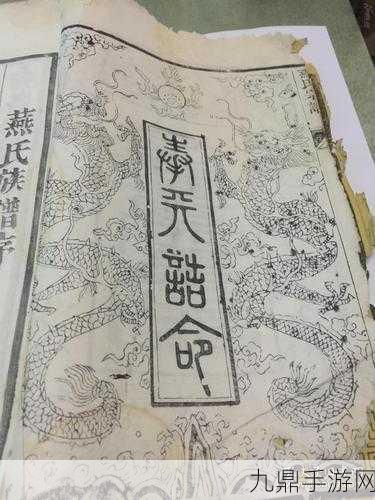 奉天誥命
燕氏族譜序
九鼎手游网